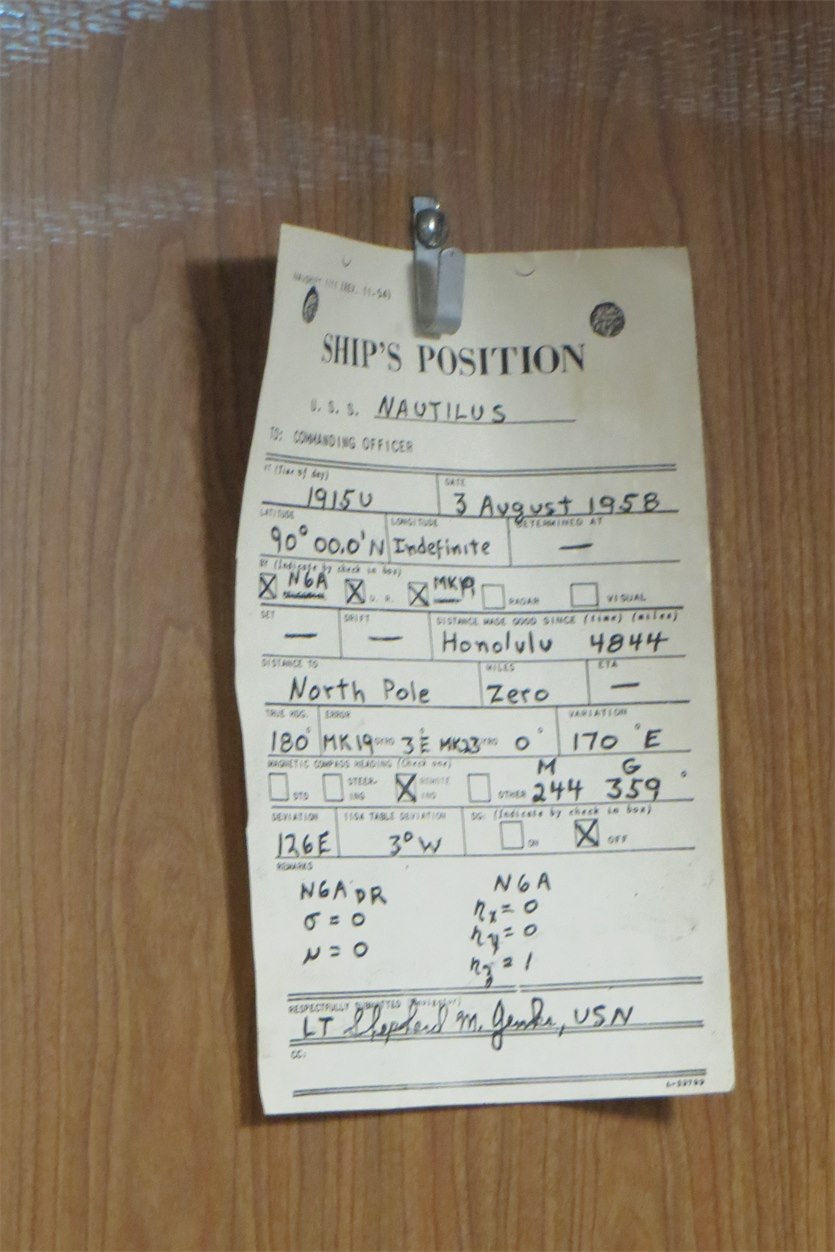 (REV. 11-54)
SHIP'S POSITION
U. S. S. NAUTILUS
TO: COMMANDING OFFICER
AT (Time of day) DATE
1915U 3 August 1958
LATITUDE LONGITUDE DETERMINED AT
90° 00.0'N Indefinite —
BY (Indicate by check in box)
N6A D. R. MK19 RADAR VISUAL
SET DRIFT DISTANCE MADE GOOD SINCE (time) (miles)
— — Honolulu 4844
DISTANCE TO MILES ETA
North Pole Zero —
TRUE HDG. ERROR VARIATION
180° MK19 GYRO 3°E MK23 GYRO 0° 170 °E
MAGNETIC COMPASS HEADING (Check one) M G
STD STEERING REMOTE IND OTHER 244 359 °
DEVIATION 1104 TABLE DEVIATION DG: (Indicate by check in box)
126E 3°W ON OFF
REMARKS
N6A DR N6A
σ = 0 nx = 0
μ = 0 ny = 0
nz = 1
RESPECTFULLY SUBMITTED (Navigator)
LT Shepherd M. Jenks, USN
CC: